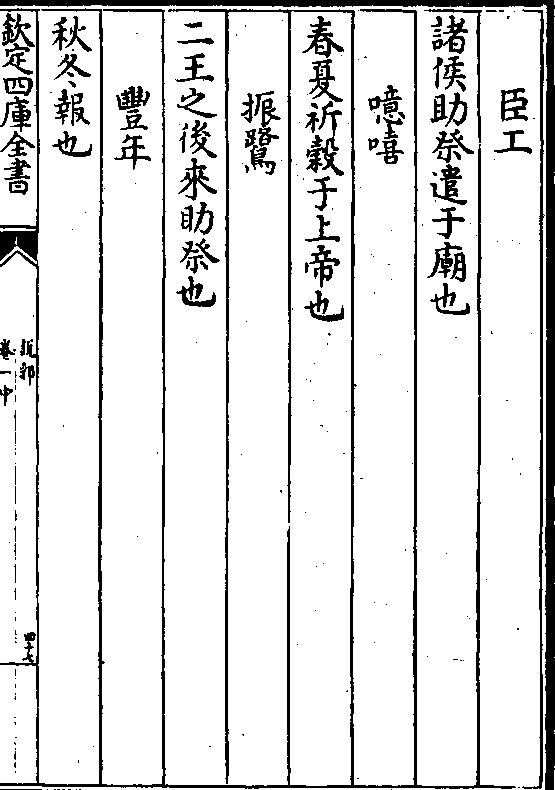 臣工
諸侯助祭遣于廟也
噫嘻
春夏祈穀于上帝也
振鷺
二王之後來助祭也
豐年
秋冬報也
欽定四庫全書
說郛
卷一中
四十七